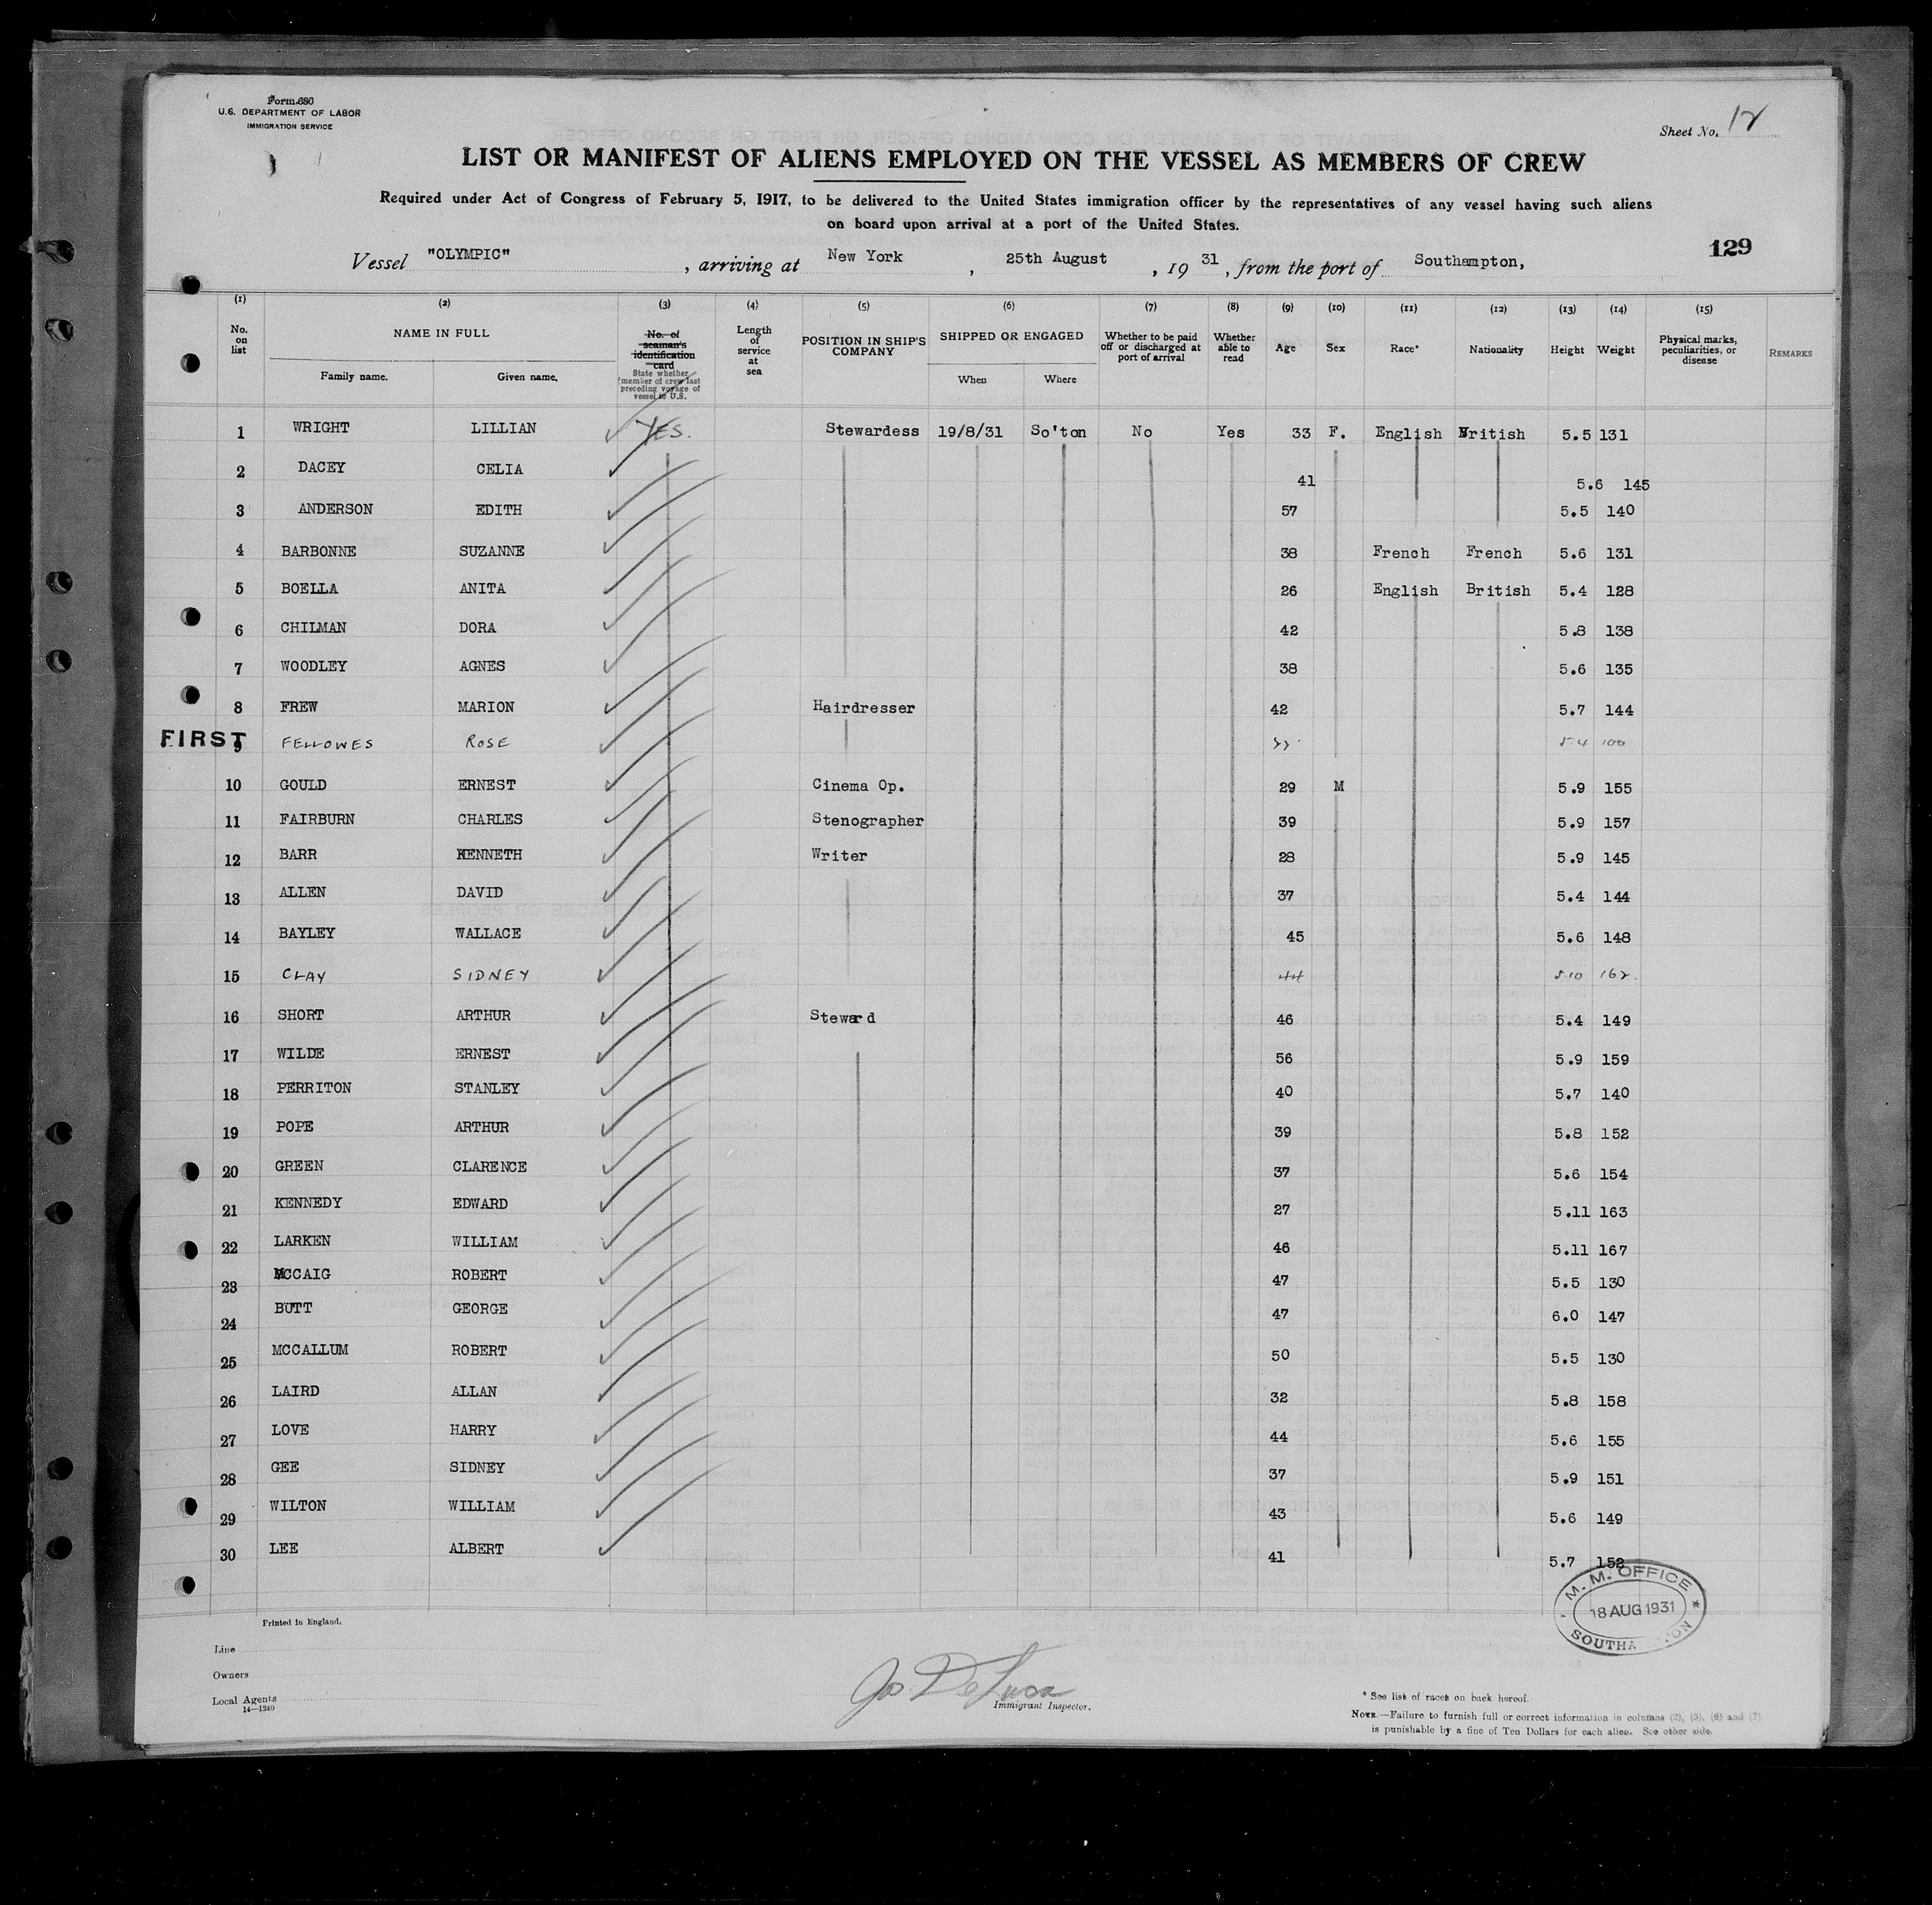 Form 680
U.S. DEPARTMENT OF LABOR
IMMIGRATION SERVICE
Sheet No. 12
LIST OR MANIFEST OF ALIENS EMPLOYED ON THE VESSEL AS MEMBERS OF CREW
Required under Act of Congress of February 5, 1917, to be delivered to the United States immigration officer by the representatives of any vessel having such aliens
on board upon arrival at a port of the United States.
129
Vessel "OLYMPIC", arriving at New York, 25th August, 1931, from the port of Southampton,
(1) (2) (3) (4) (5) (6) (7) (8) (9) (10) (11) (12) (13) (14) (15)
No. on list NAME IN FULL Family name. Given name. No. of seaman's identification card State whether member of crew last preceding voyage of vessel to U.S. Length of service at sea POSITION IN SHIP'S COMPANY SHIPPED OR ENGAGED When Where Whether to be paid off or discharged at port of arrival Whether able to read Age Sex Race* Nationality Height Weight Physical marks, peculiarities, or disease REMARKS
1 WRIGHT LILLIAN YES. Stewardess 19/8/31 So'ton No Yes 33 F. English British 5.5 131
2 DACEY CELIA 41 5.6 145
3 ANDERSON EDITH 57 5.5 140
4 BARBONNE SUZANNE 38 French French 5.6 131
5 BOELLA ANITA 26 English British 5.4 128
6 CHILMAN DORA 42 5.8 138
7 WOODLEY AGNES 38 5.6 135
8 FREW MARION Hairdresser 42 5.7 144
FIRST 9 FELLOWES ROSE 5.4 100
10 GOULD ERNEST Cinema Op. 29 M 5.9 155
11 FAIRBURN CHARLES Stenographer 39 5.9 157
12 BARR KENNETH Writer 28 5.9 145
13 ALLEN DAVID 37 5.4 144
14 BAYLEY WALLACE 45 5.6 148
15 CLAY SIDNEY 44 5.10 162.
16 SHORT ARTHUR Steward 46 5.4 149
17 WILDE ERNEST 56 5.9 159
18 PERRITON STANLEY 40 5.7 140
19 POPE ARTHUR 39 5.8 152
20 GREEN CLARENCE 37 5.6 154
21 KENNEDY EDWARD 27 5.11 163
22 LARKEN WILLIAM 46 5.11 167
23 MCCAIG ROBERT 47 5.5 130
24 BUTT GEORGE 47 6.0 147
25 MCCALLUM ROBERT 50 5.5 130
26 LAIRD ALLAN 32 5.8 158
27 LOVE HARRY 44 5.6 155
28 GEE SIDNEY 37 5.9 151
29 WILTON WILLIAM 43 5.6 149
30 LEE ALBERT 41 5.7 152
M. M. OFFICE
18 AUG 1931
Printed in England.
Line
Owners
Local Agents
14—1240
Jos. De Lusa
Immigrant Inspector.
* See list of races on back hereof.
NOTE.—Failure to furnish full or correct information in columns (2), (5), (6) and (7)
is punishable by a fine of Ten Dollars for each alien. See other side.